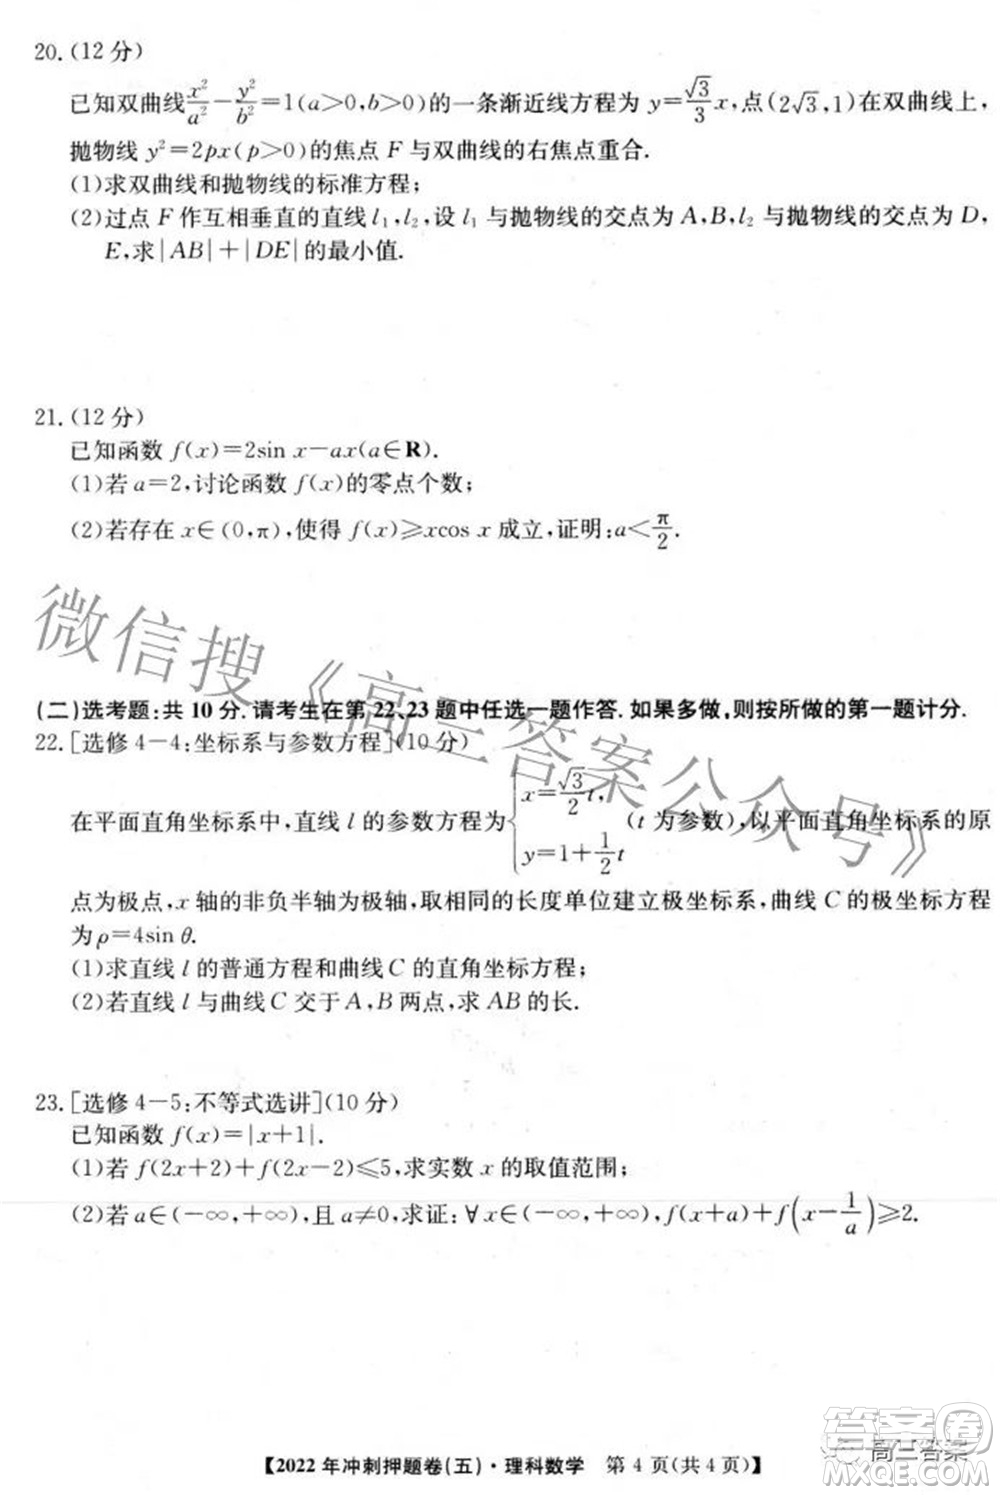 20.(12 分)
已知双曲线x²/a²−y²/b²=1(a>0,b>0)的一条渐近线方程为 y=√3/3 x,点(2√3,1)在双曲线上,
抛物线 y²=2px(p>0)的焦点 F 与双曲线的右焦点重合.
(1)求双曲线和抛物线的标准方程;
(2)过点 F 作互相垂直的直线 l₁,l₂,设 l₁ 与抛物线的交点为 A,B,l₂ 与抛物线的交点为 D,
E,求|AB|+|DE|的最小值.
21.(12 分)
已知函数 f(x)=2sin x−ax(a∈R).
(1)若 a=2,讨论函数 f(x)的零点个数;
(2)若存在 x∈(0,π),使得 f(x)≥xcos x 成立,证明:a<π/2.
微信搜《高三答案公众号》
(二)选考题:共 10 分.请考生在第 22、23 题中任选一题作答.如果多做,则按所做的第一题计分.
22.[选修 4−4:坐标系与参数方程](10 分)
在平面直角坐标系中,直线 l 的参数方程为{x=√3/2 t, y=1+1/2 t (t 为参数),以平面直角坐标系的原
点为极点,x 轴的非负半轴为极轴,取相同的长度单位建立极坐标系,曲线 C 的极坐标方程
为ρ=4sin θ.
(1)求直线 l 的普通方程和曲线 C 的直角坐标方程;
(2)若直线 l 与曲线 C 交于 A,B 两点,求 AB 的长.
23.[选修 4−5:不等式选讲](10 分)
已知函数 f(x)=|x+1|.
(1)若 f(2x+2)+f(2x−2)≤5,求实数 x 的取值范围;
(2)若 a∈(−∞,+∞),且 a≠0,求证:∀x∈(−∞,+∞),f(x+a)+f(x−1/a)≥2.
【2022 年冲刺押题卷(五)·理科数学 第 4 页(共 4 页)】
高三答案
答案圈
MXQE.COM